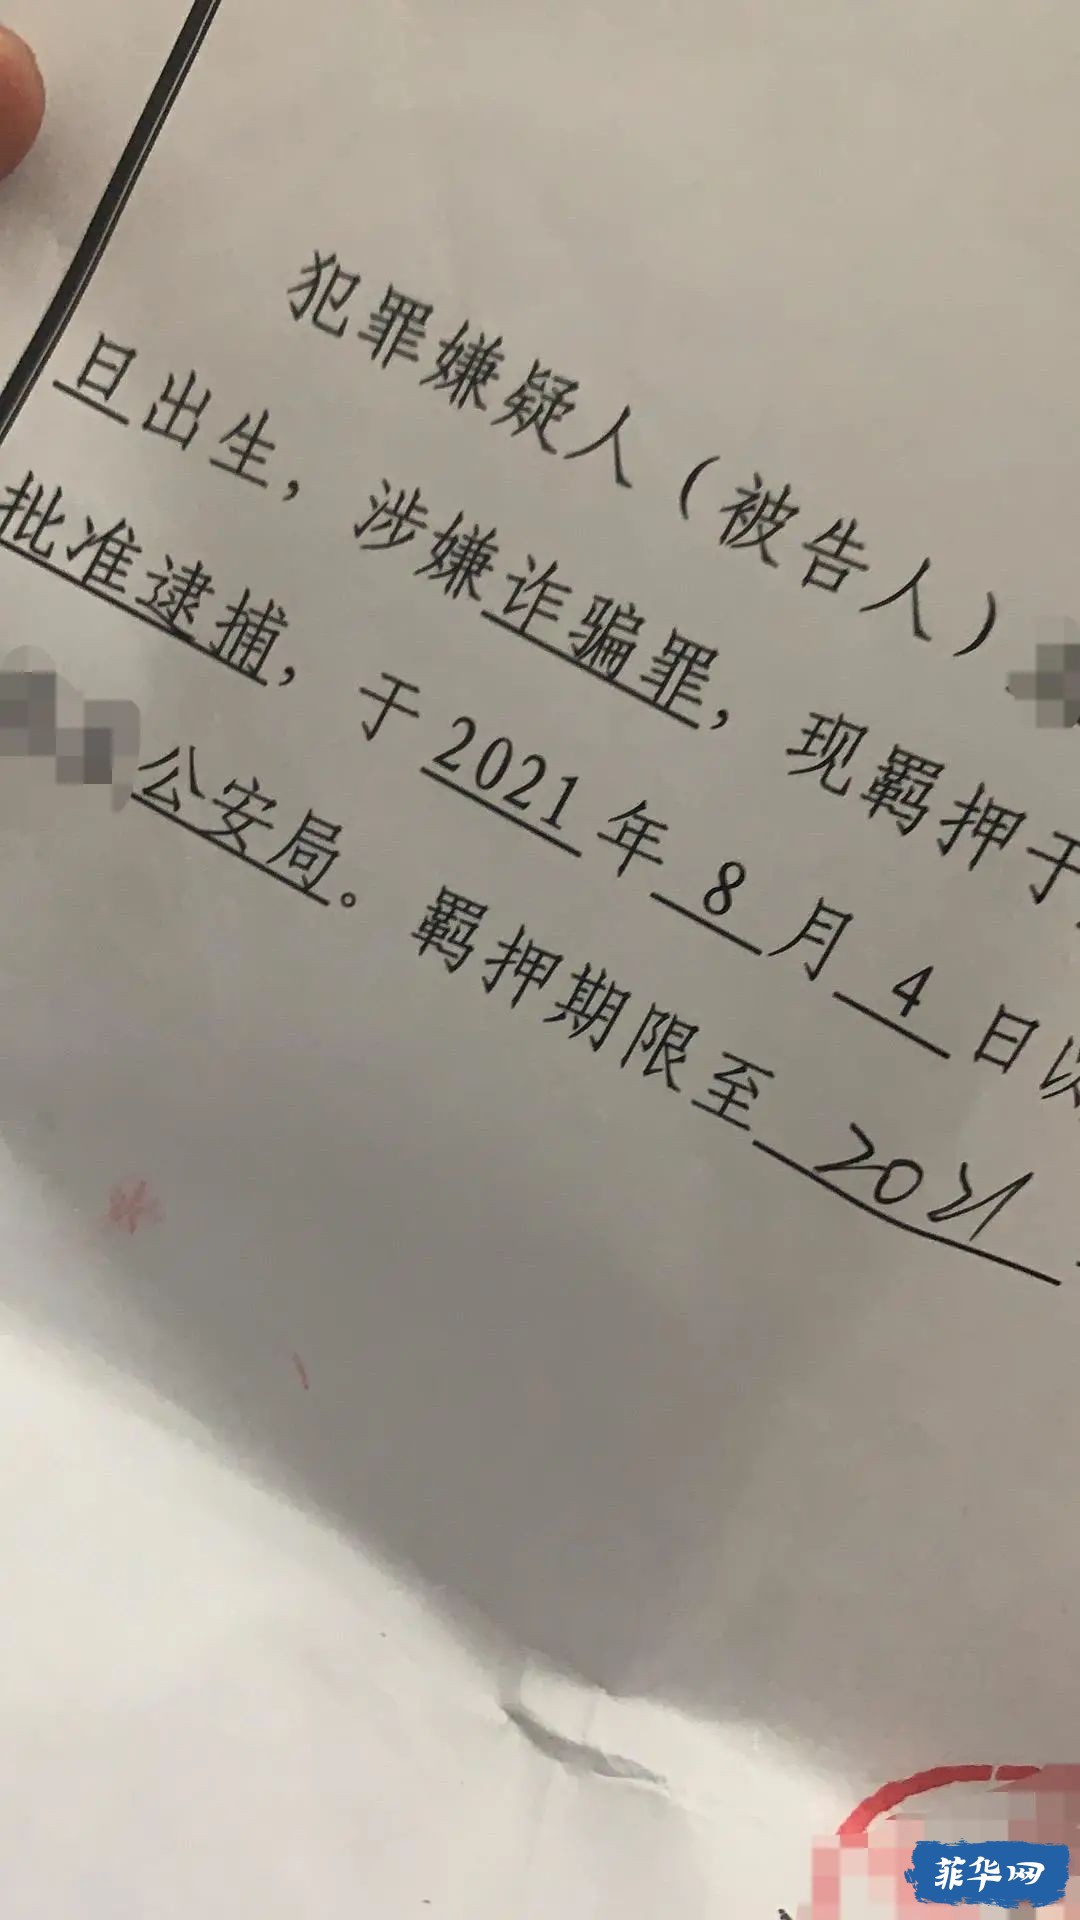 犯罪嫌疑人（被告人）
日出生，涉嫌诈骗罪，现羁押于
批准逮捕，于2021年8月4日
公安局。羁押期限至2021
菲华网